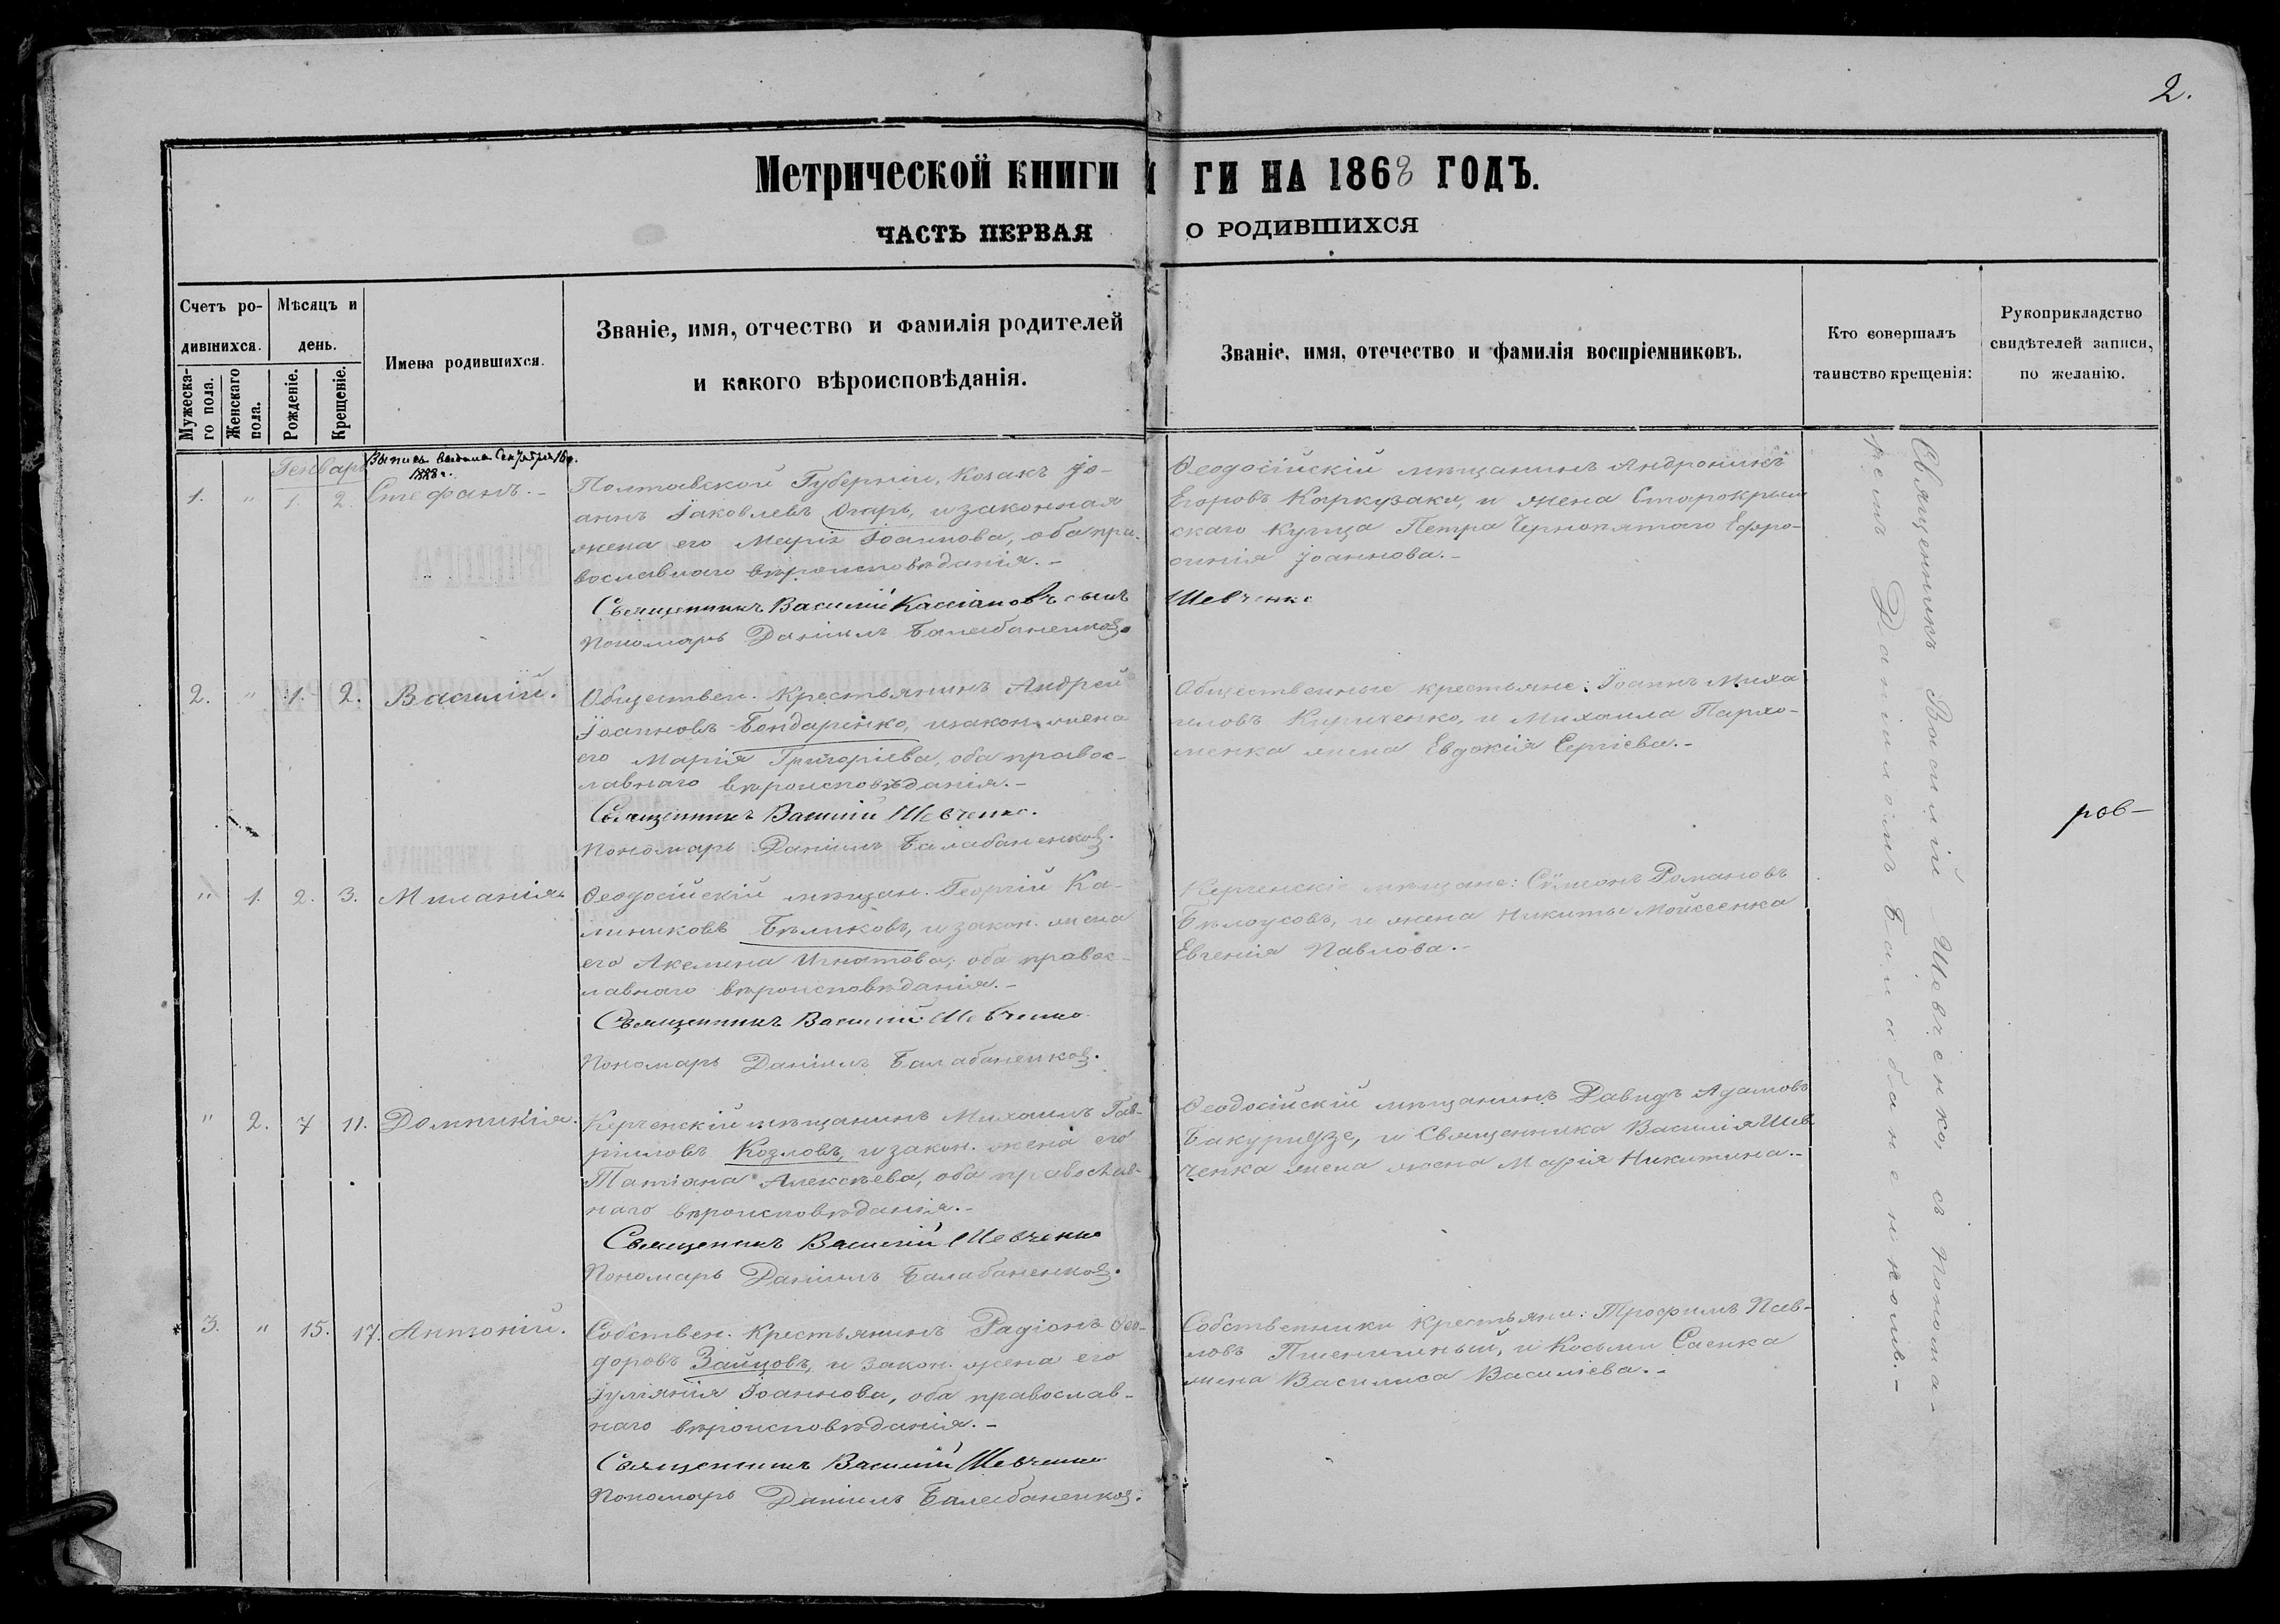 2.
Метрической книги ГИ НА 1868 ГОДЪ.
ЧАСТЬ ПЕРВАЯ О РОДИВШИХСЯ
Счетъ ро-
дившихся.
Мѣсяцъ и
день.
Мужеска-
го пола.
Женскаго
пола.
Рожденіе.
Крещеніе.
Имена родившихся.
Званіе, имя, отчество и фамилія родителей
и какого вѣроисповѣданія.
Званіе, имя, отечество и фамилія воспріемниковъ.
Кто совершалъ
таинство крещенія:
Рукоприкладство
свидѣтелей записи,
по желанію.
Генварь
1. " 1. 2. Стефанъ.-
Полтавской Губерніи, Козакъ Іо-
аннъ Іаковлевъ Огарь, и законная
жена его Марія Іоаннова, оба пра-
вославнаго вѣроисповѣданія.-
Священникъ Василій Кассіановъ сынъ Шевченко
Пономарь Даніилъ Балабаненковъ.
Ѳеодосійскій мѣщанинъ Андроникъ
Егоровъ Каркузаки, и жена Старокрым
скаго купца Петра Чернопятаго Ефро-
синія Іоаннова.-
2. " 1. 2. Василій.
Обществен. Крестьянинъ Андрей
Іоанновъ Бондаренко, и закон. жена
его Марія Григоріева, оба правос-
лавнаго вѣроисповѣданія.-
Священникъ Василій Шевченко.
Пономарь Даніилъ Балабаненковъ.
Общественные крестьяне: Іоаннъ Миха
иловъ Кириченко, и Михаила Пархо-
менка жена Евдокія Сергіева.-
" 1. 2. 3. Миланія.
Ѳеодосійскій мѣщан. Георгій Ка-
линиковъ Бѣликовъ, и закон. жена
его Акелина Игнатова, оба правос-
лавнаго вѣроисповѣданія.-
Священникъ Василій Шевченко
Пономарь Даніилъ Балабаненковъ.
Керченскіе мѣщане: Сѷмеонъ Романовъ
Бѣлоусовъ, и жена Никиты Мойсеенка
Евгенія Павлова.-
" 2. 7 11. Домникія.
Керченскій мѣщанинъ Михаилъ Гав-
риловъ Козловъ, и закон. жена его
Татіана Алексѣева, оба православ-
наго вѣроисповѣданія.-
Священникъ Василій Шевченко
Пономарь Даніилъ Балабаненковъ.
Ѳеодосійскій мѣщанинъ Давидъ Адамовъ
Бакуридзе, и Священника Василія Шев
ченка жена Марія Никитина.-
3. " 15. 17. Антоній.
Собствен. Крестьянинъ Радіонъ Ѳео-
доровъ Зайцовъ, и закон. жена его
Іуліянія Іоаннова, оба православ-
наго вѣроисповѣданія.-
Священникъ Василій Шевченко
Пономарь Даніилъ Балабаненковъ.
Собственники крестьяни: Трофимъ Пав-
ловъ Пшеничный, и Косьми Саенка
жена Василиса Василіева.-
Священникъ Василій Шевченко, съ понома-
ремъ Даніиломъ Балабаненкомъ.-
ров-